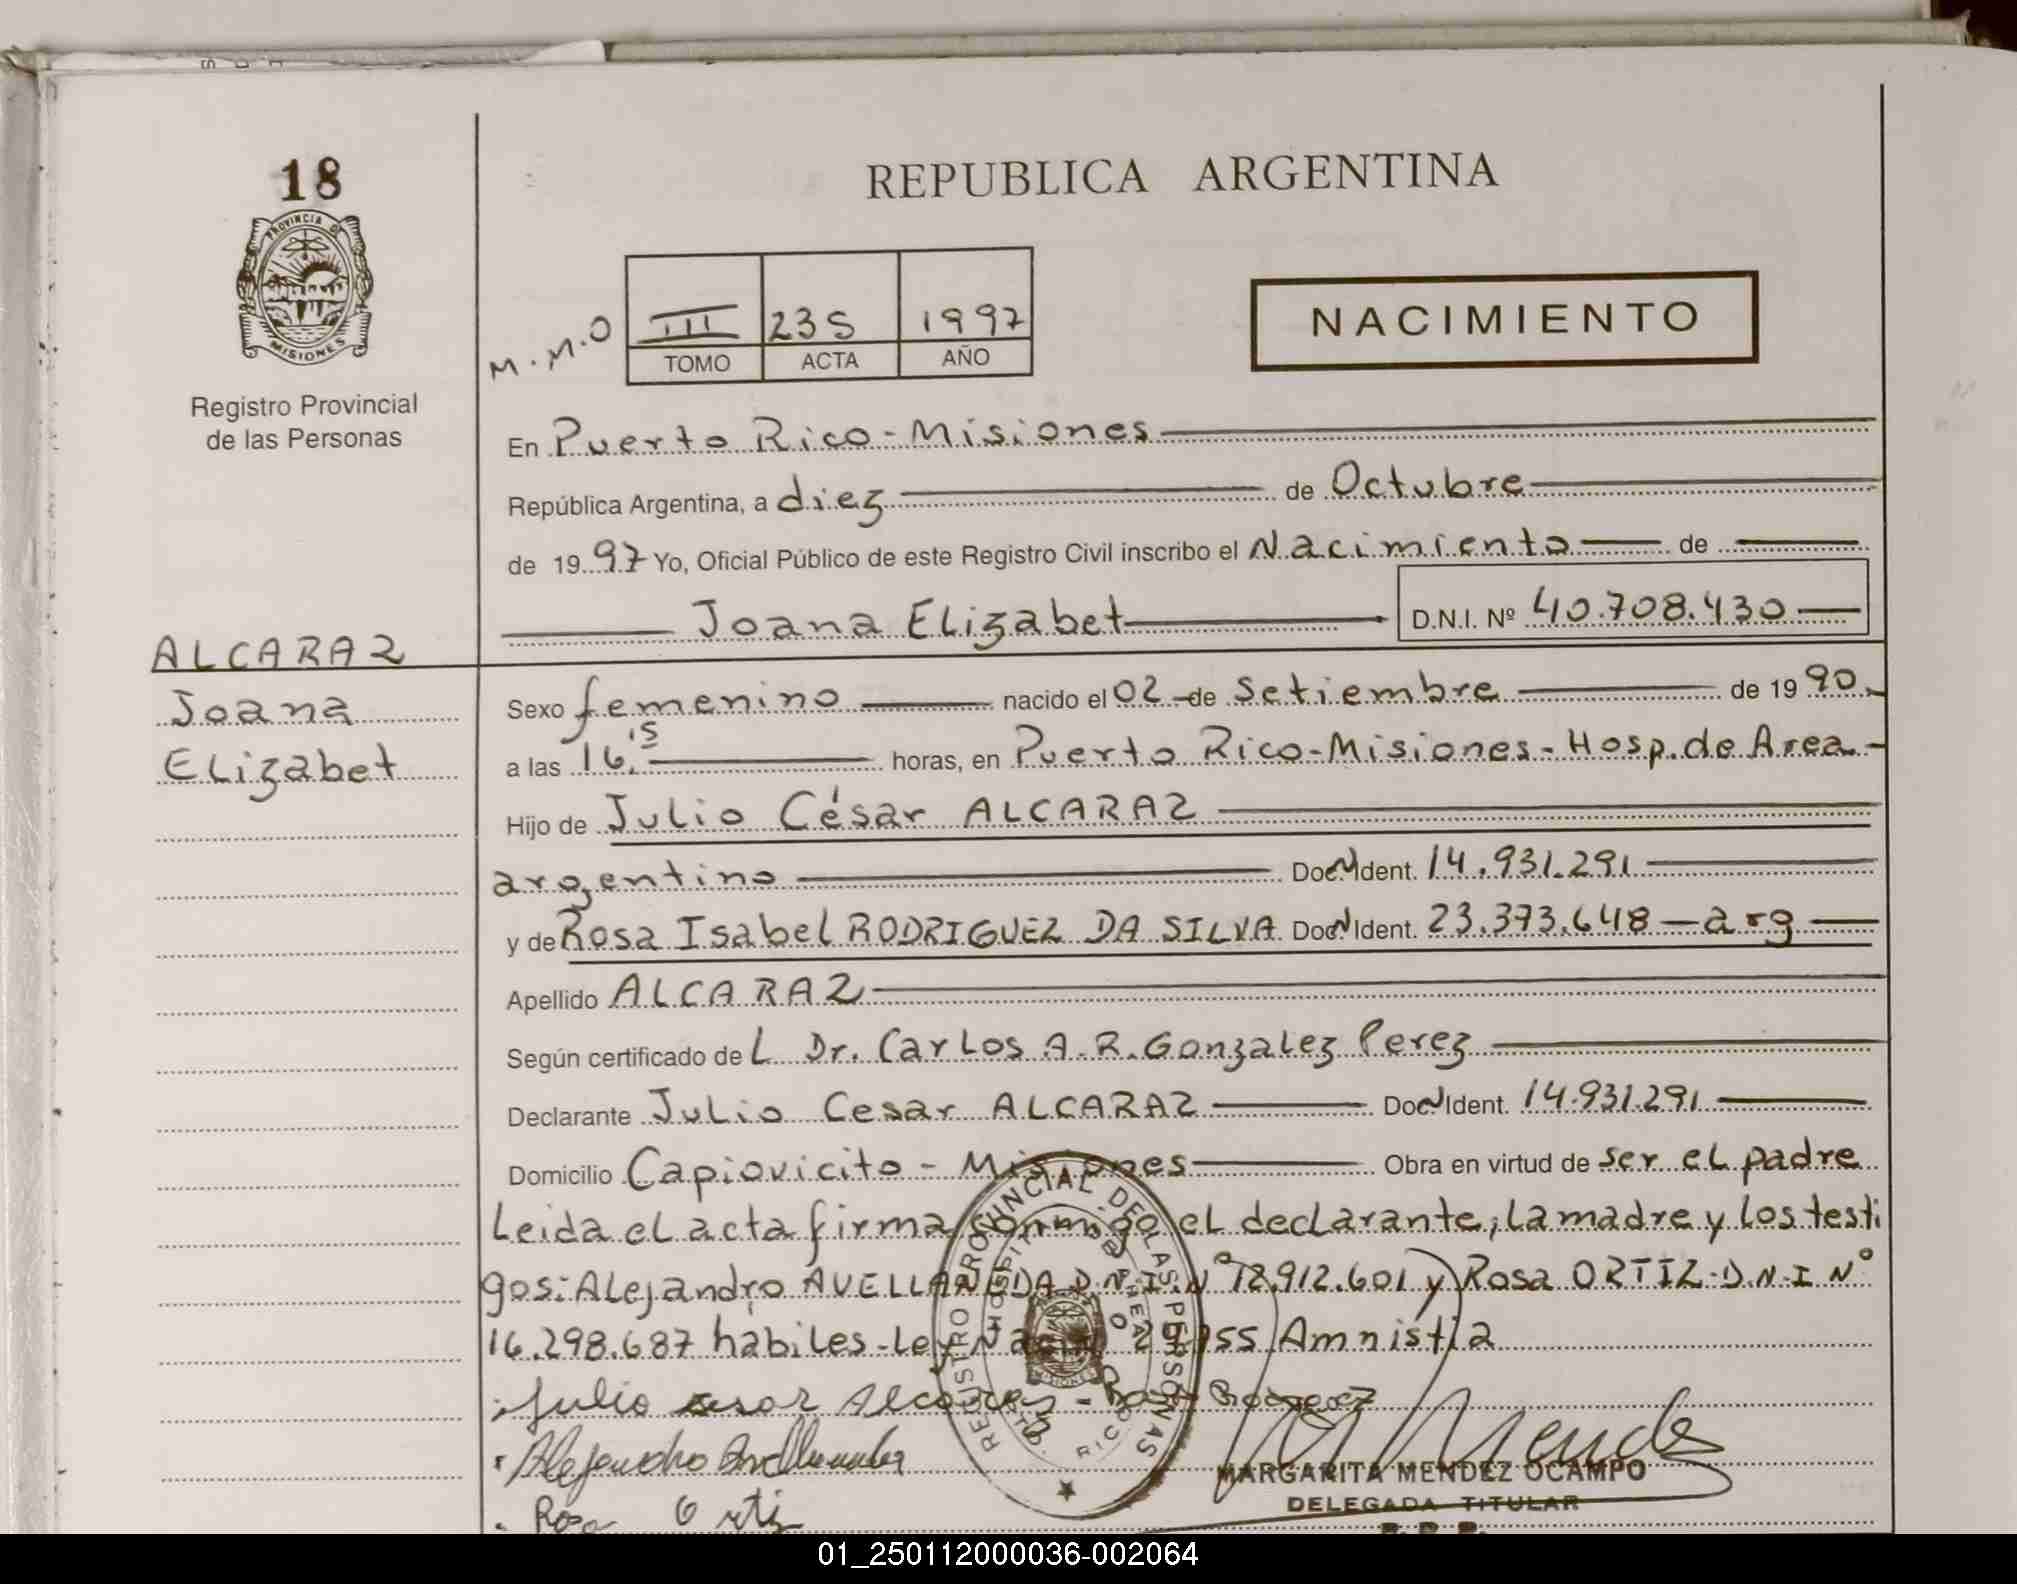 18
PROVINCIA DE
MISIONES
Registro Provincial
de las Personas
REPUBLICA ARGENTINA
M.M.O
III 235 1997
TOMO ACTA AÑO
NACIMIENTO
En Puerto Rico - Misiones
República Argentina, a diez de Octubre
de 1997 Yo, Oficial Público de este Registro Civil inscribo el Nacimiento de
Joana Elizabet D.N.I. Nº 40.708.430
ALCARAZ
Joana
Elizabet
Sexo femenino nacido el 02 de Setiembre de 1990.
a las 16,15 horas, en Puerto Rico-Misiones-Hosp.de Area.-
Hijo de Julio César ALCARAZ
argentino Doc. Ident. 14.931.291
y de Rosa Isabel RODRIGUEZ DA SILVA Doc. Ident. 23.373.648 - arg
Apellido ALCARAZ
Según certificado de L Dr. Carlos A.R. Gonzalez Perez
Declarante Julio Cesar ALCARAZ Doc. Ident. 14.931.291
Domicilio Capiovicito - Misiones Obra en virtud de ser el padre
Leida el acta firma conmigo el declarante, la madre y los testi
gos: Alejandro AVELLANEDA D.N.I.Nº 12.912.601 y Rosa ORTIZ-D.N.I Nº
16.298.687 habiles-Ley Nac. Amnistia
Julio cesar Alcaraz - Rosa Rodriguez
Alejandro Avellaneda
Rosa Ortiz
REGISTRO PROVINCIAL DE LAS PERSONAS
HOSPITAL DE AREA
PTO. RICO
MISIONES
Mendez
MARGARITA MENDEZ OCAMPO
DELEGADA TITULAR
01_250112000036-002064